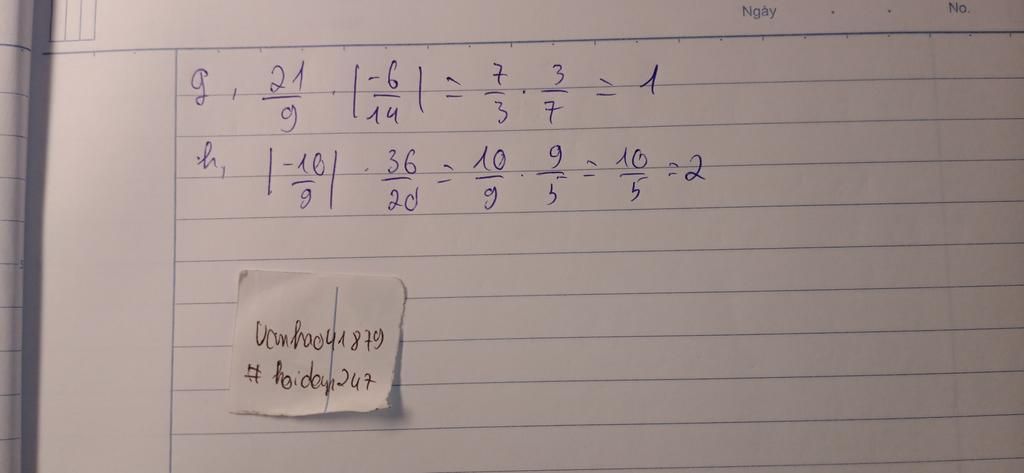 Ngày . . No.
g, 21/9 . |-6/14| = 7/3 . 3/7 = 1
h, |-10/9| . 36/20 = 10/9 . 9/5 = 10/5 = 2
Vanhao41879
# hoidap247